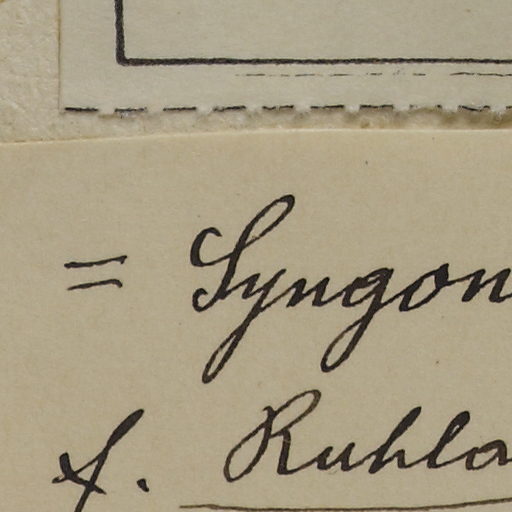 = Syngon
f. Ruhla